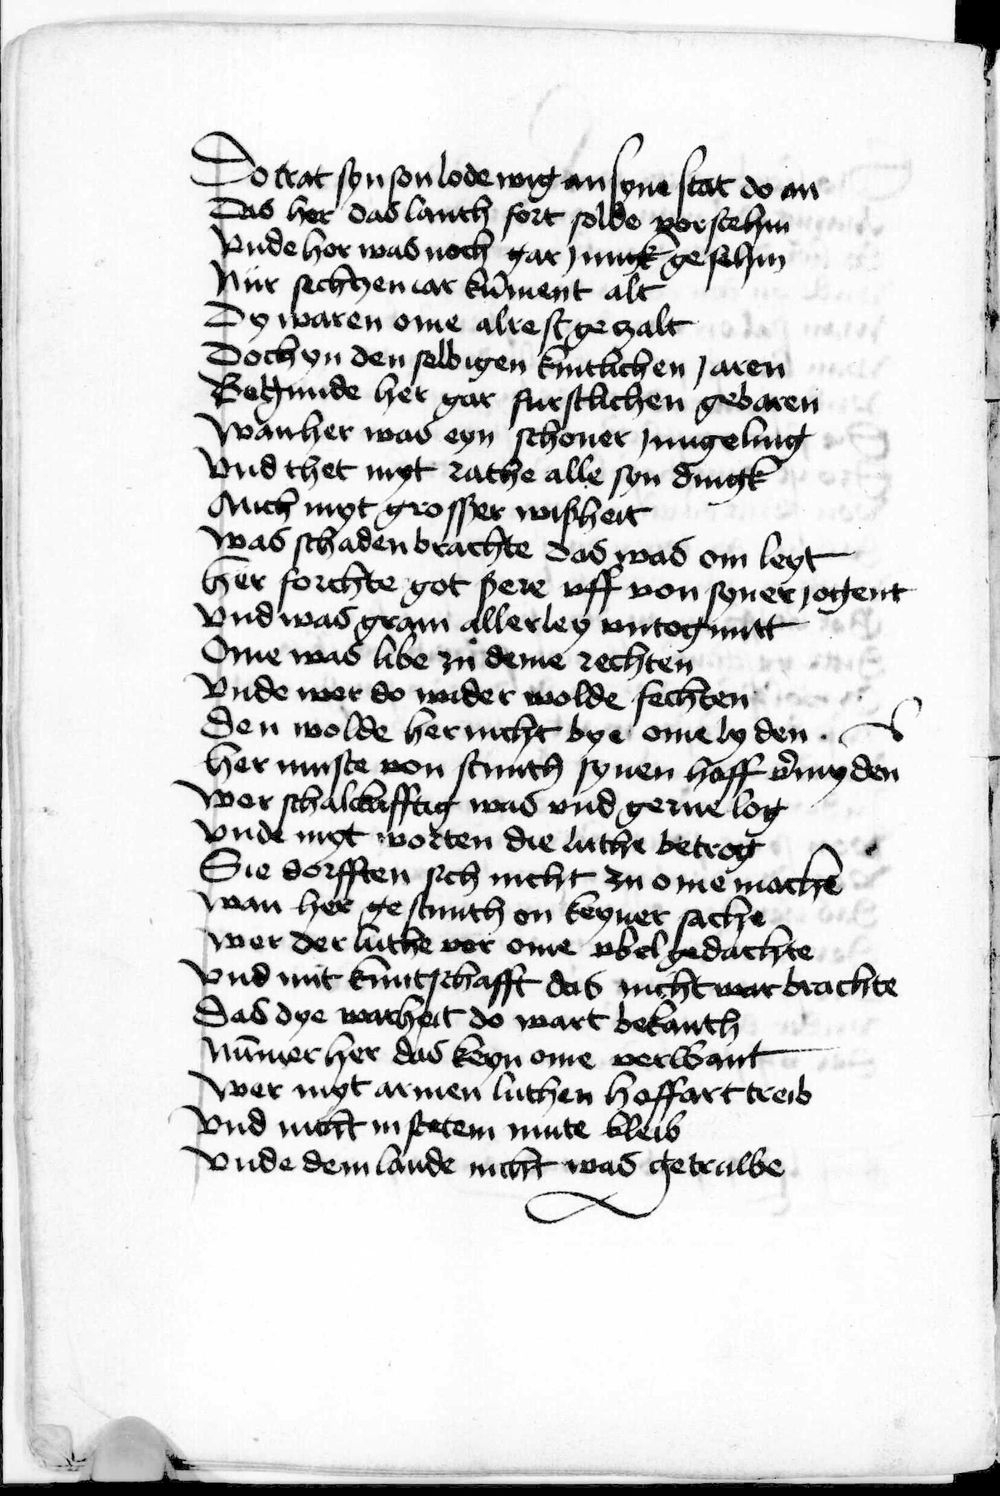 Do trat syn son lodewig an syne stat do an
Das her das lanth fort solde vorstehin
Vnde her was noch gar jungk gesehin
Nur sechtzen iar kūment alt
Dy waren ome alrest gezalt
Doch yn den selbigen kintlichen jaren
Begunde her gar furstlichen gebaren
Wan her was eyn schoner jungeling
Vnd thet myt rathe alle syn dingk
Auch myt grosser wißheit
Was schaden brachte das was om leyt
Her forchte got sere vff von syner jogent
Vnd was gram allerley vntoguntt
Ome was libe zu deme rechten
Vnde wer do wider wolde fechten
Den wolde her nicht bye ome lyden
Her muste von stunth synen hoff v̄myden
Wer schalckhfftig was vnd gerne log
Vnde myt worten die luthe betrog
Sie dorfften sich nicht zu ome mache
Wan her gestunth on keyner sache
Wer der luthe vor ome vbel gedachte
Vnd mit kuntschafft das nicht war brachte
Das dye warheit do wart bekanth
Nūmer her das keyn ome verwant
Wer myt armen luthen hoffart treib
Vnd nicht in stetem mute bleib
Vnde dem lande nicht was getralbe